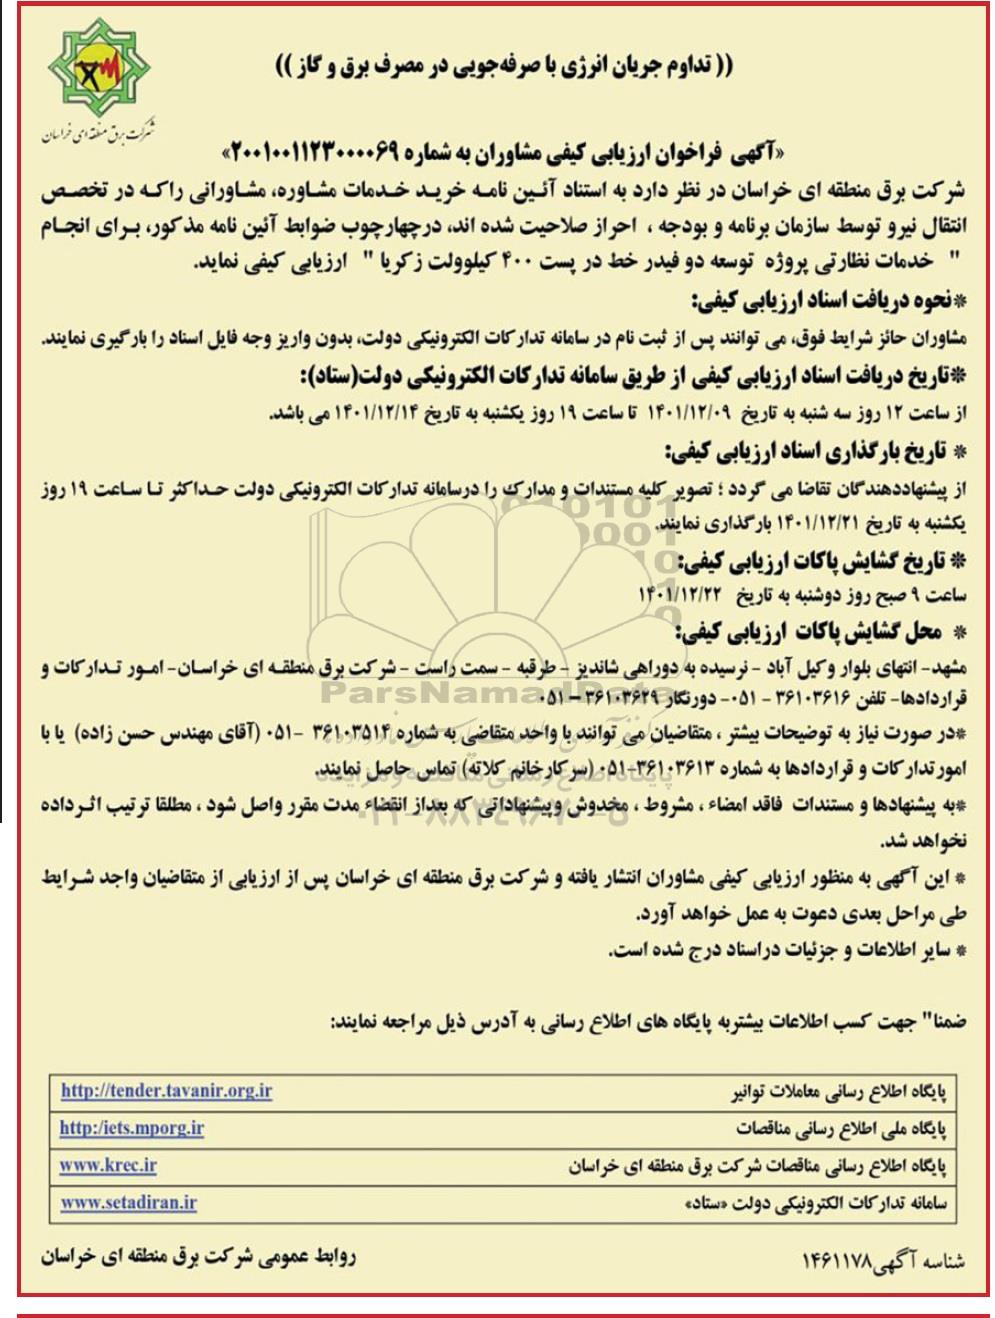 شرکت برق منطقه ای خراسان
(( تداوم جریان انرژی با صرفه‌جویی در مصرف برق و گاز ))
«آگهی فراخوان ارزیابی کیفی مشاوران به شماره ۲۰۰۱۰۰۱۱۲۳۰۰۰۰۶۹»
شرکت برق منطقه ای خراسان در نظر دارد به استناد آئین نامه خرید خدمات مشاوره، مشاورانی راکه در تخصص
انتقال نیرو توسط سازمان برنامه و بودجه ، احراز صلاحیت شده اند، درچهارچوب ضوابط آئین نامه مذکور، برای انجام
" خدمات نظارتی پروژه توسعه دو فیدر خط در پست ۴۰۰ کیلوولت زکریا " ارزیابی کیفی نماید.
*نحوه دریافت اسناد ارزیابی کیفی:
مشاوران حائز شرایط فوق، می توانند پس از ثبت نام در سامانه تدارکات الکترونیکی دولت، بدون واریز وجه فایل اسناد را بارگیری نمایند.
*تاریخ دریافت اسناد ارزیابی کیفی از طریق سامانه تدارکات الکترونیکی دولت(ستاد):
از ساعت ۱۲ روز سه شنبه به تاریخ ۱۴۰۱/۱۲/۰۹ تا ساعت ۱۹ روز یکشنبه به تاریخ ۱۴۰۱/۱۲/۱۴ می باشد.
* تاریخ بارگذاری اسناد ارزیابی کیفی:
از پیشنهاددهندگان تقاضا می گردد ؛ تصویر کلیه مستندات و مدارک را درسامانه تدارکات الکترونیکی دولت حداکثر تا ساعت ۱۹ روز
یکشنبه به تاریخ ۱۴۰۱/۱۲/۲۱ بارگذاری نمایند.
* تاریخ گشایش پاکات ارزیابی کیفی:
ساعت ۹ صبح روز دوشنبه به تاریخ ۱۴۰۱/۱۲/۲۲
* محل گشایش پاکات ارزیابی کیفی:
مشهد- انتهای بلوار وکیل آباد - نرسیده به دوراهی شاندیز - طرقبه - سمت راست - شرکت برق منطقه ای خراسان- امور تدارکات و
قراردادها- تلفن ۳۶۱۰۳۶۱۶ - ۰۵۱- دورنگار ۳۶۱۰۳۶۲۹ - ۰۵۱
ParsNamadData
*در صورت نیاز به توضیحات بیشتر ، متقاضیان می توانند با واحد متقاضی به شماره ۳۶۱۰۳۵۱۴ -۰۵۱ (آقای مهندس حسن زاده) یا با
امورتدارکات و قراردادها به شماره ۳۶۱۰۳۶۱۳-۰۵۱ (سرکارخانم کلاته) تماس حاصل نمایند.
*به پیشنهادها و مستندات فاقد امضاء ، مشروط ، مخدوش وپیشنهاداتی که بعداز انقضاء مدت مقرر واصل شود ، مطلقا ترتیب اثرداده
نخواهد شد.
* این آگهی به منظور ارزیابی کیفی مشاوران انتشار یافته و شرکت برق منطقه ای خراسان پس از ارزیابی از متقاضیان واجد شرایط
طی مراحل بعدی دعوت به عمل خواهد آورد.
* سایر اطلاعات و جزئیات دراسناد درج شده است.
ضمنا" جهت کسب اطلاعات بیشتربه پایگاه های اطلاع رسانی به آدرس ذیل مراجعه نمایند:
پایگاه اطلاع رسانی معاملات توانیر http://tender.tavanir.org.ir
پایگاه ملی اطلاع رسانی مناقصات http:/iets.mporg.ir
پایگاه اطلاع رسانی مناقصات شرکت برق منطقه ای خراسان www.krec.ir
سامانه تدارکات الکترونیکی دولت «ستاد» www.setadiran.ir
شناسه آگهی۱۴۶۱۱۷۸
روابط عمومی شرکت برق منطقه ای خراسان